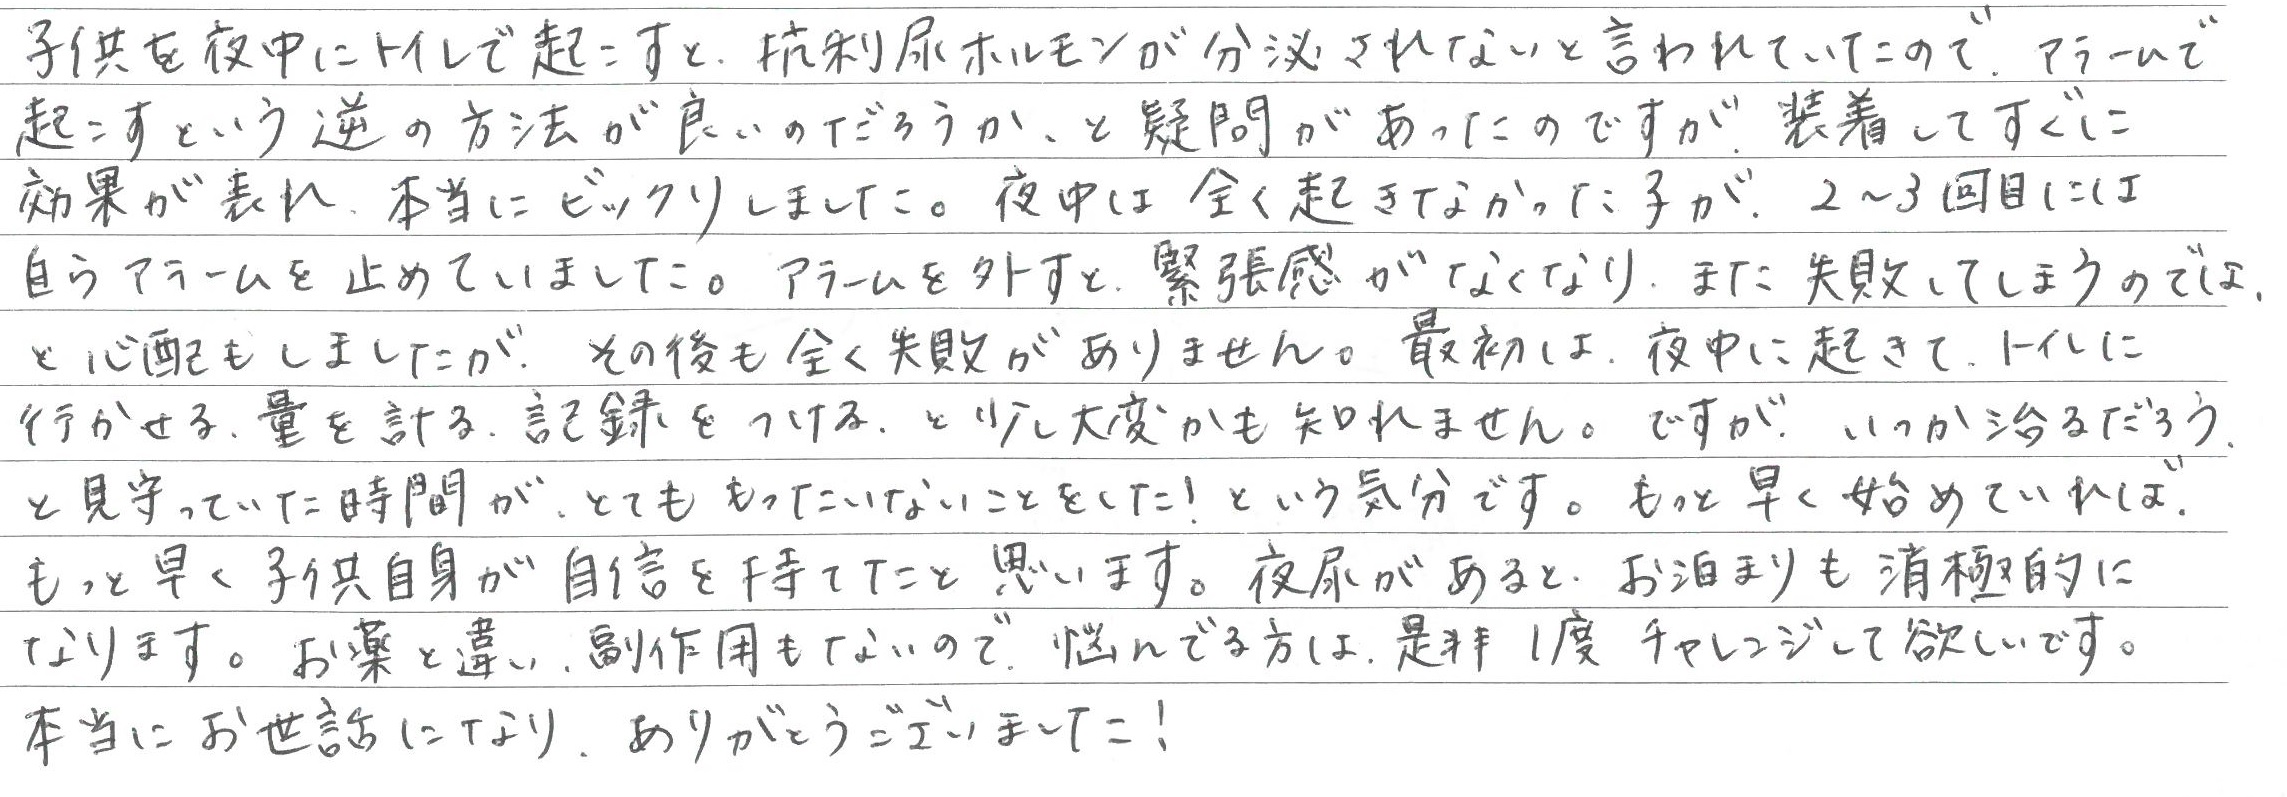 子供を夜中にトイレで起こすと、抗利尿ホルモンが分泌されないと言われていたので、アラームで
起こすという逆の方法が良いのだろうか、と疑問があったのですが、装着してすぐに
効果が表れ、本当にビックリしました。夜中は全く起きなかった子が、2~3回目には
自らアラームを止めていました。アラームを外すと、緊張感がなくなり、また失敗してしまうのでは、
と心配もしましたが、その後も全く失敗がありません。最初は、夜中に起きて、トイレに
行かせる、量を計る、記録をつける、と少し大変かも知れません。ですが、いつか治るだろう、
と見守っていた時間が、とてももったいないことをした!という気分です。もっと早く始めていれば、
もっと早く子供自身が自信を持てたと思います。夜尿があると、お泊まりも消極的に
なります。お薬と違い、副作用もないので、悩んでる方は、是非1度チャレンジして欲しいです。
本当にお世話になり、ありがとうございました!